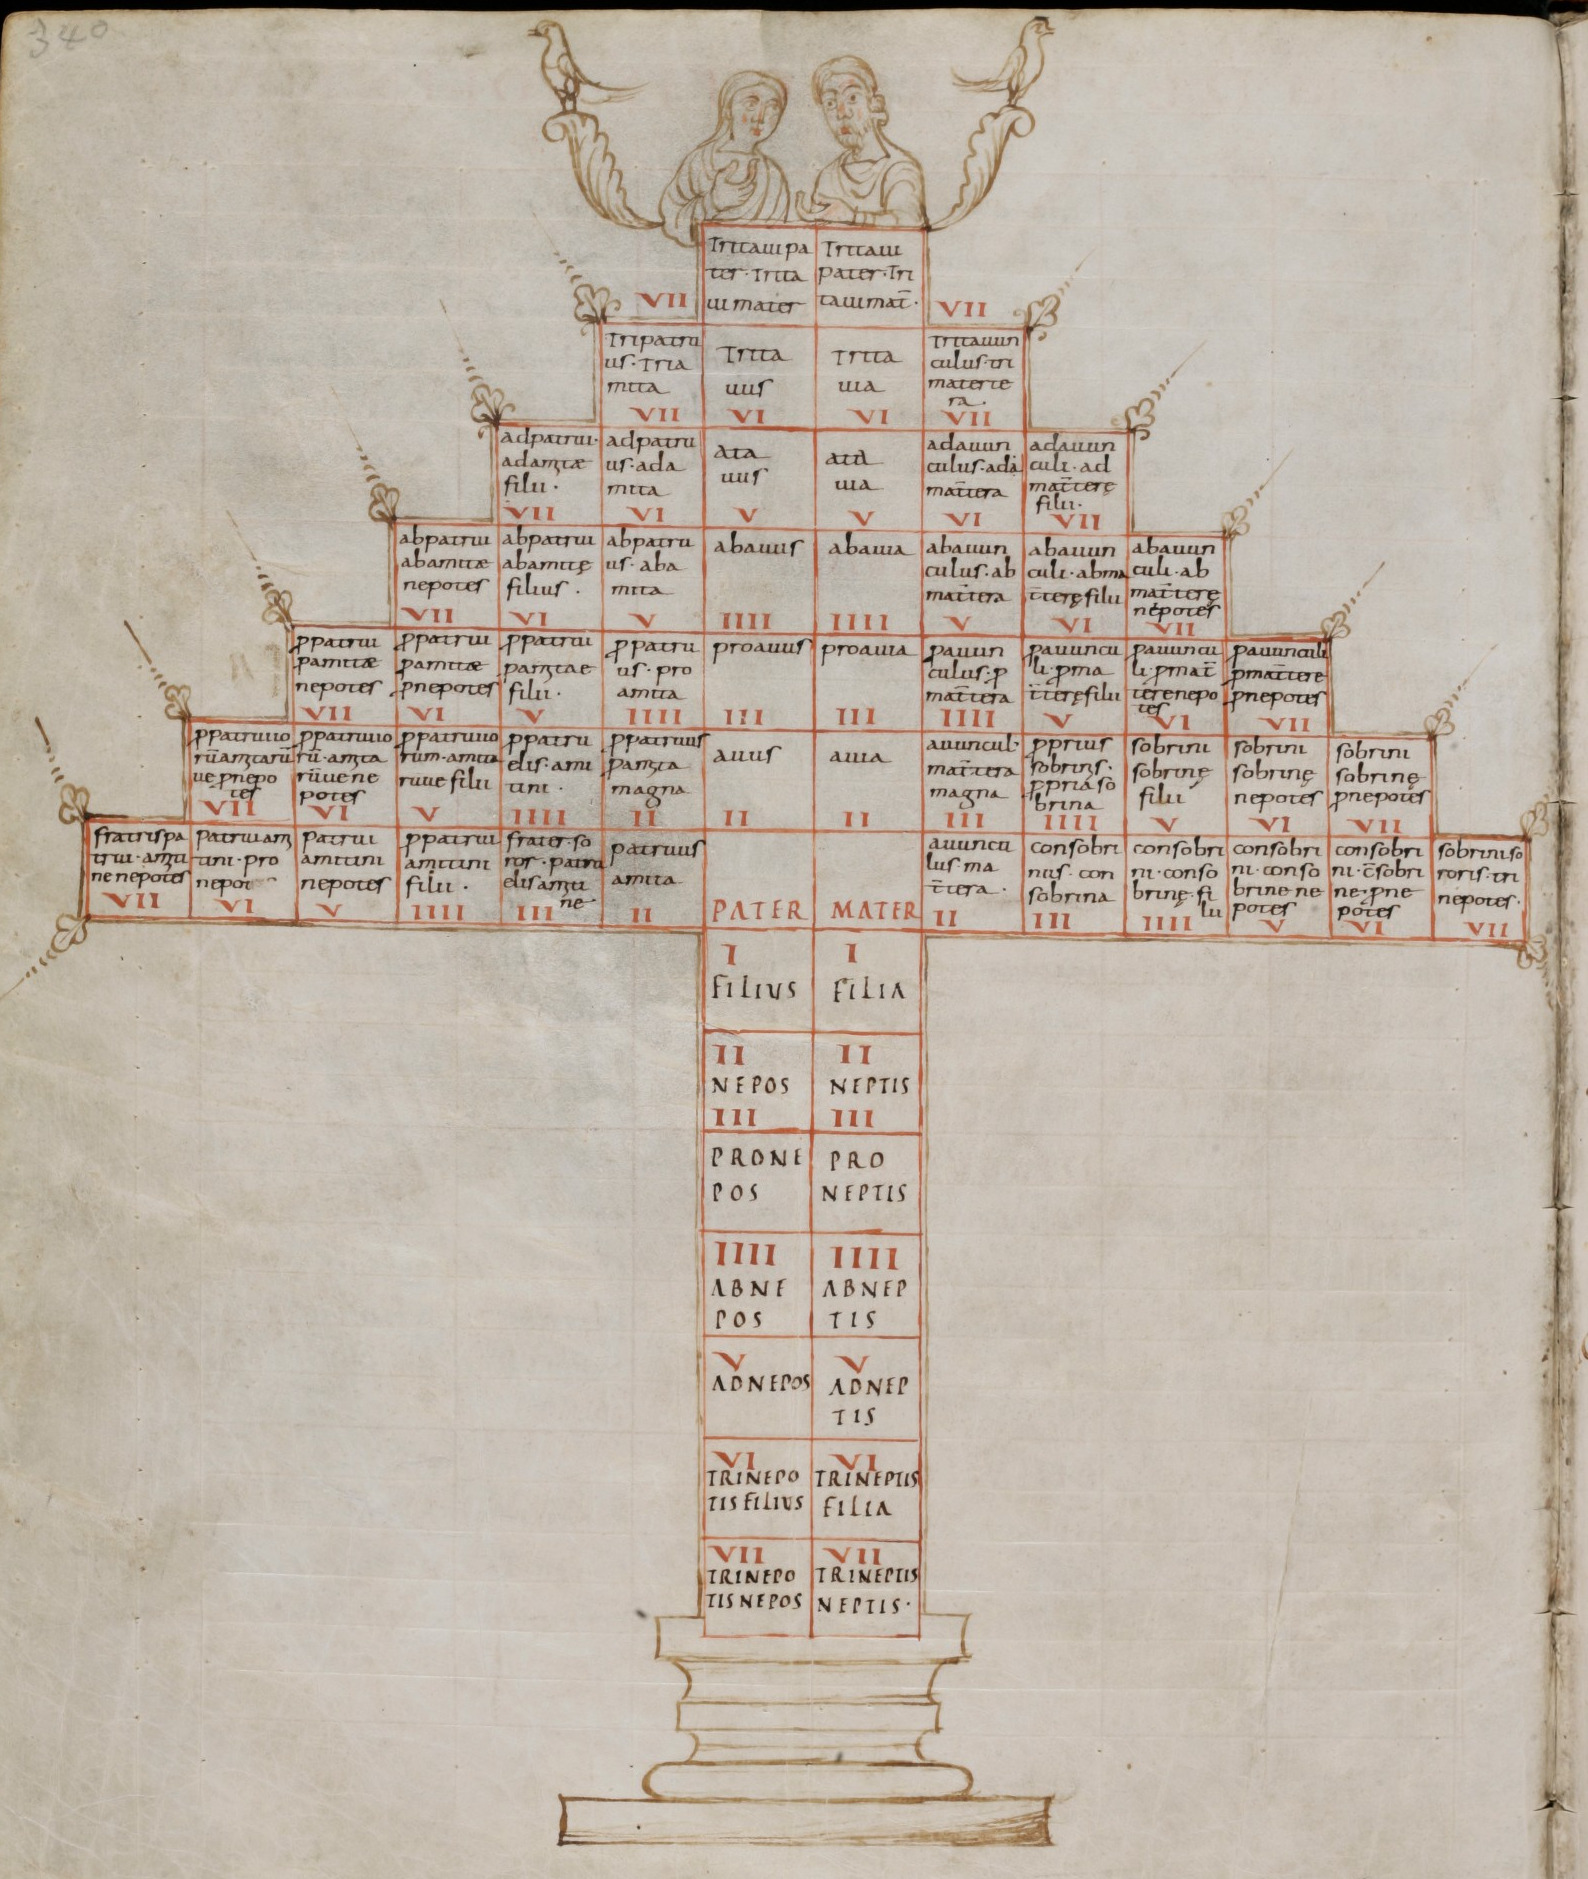 340
Tritaui pa
ter · Trita
ui mater
Tritaui
pater · Tri
taui mat̄ ·
VII
VII
Tripatru
us · Tria
mita
VII
Trita
uus
VI
Trita
uia
VI
Tritauun
culus · tri
materte
ra ·
VII
adpatrui ·
adamitæ
filii ·
VII
adpatru
us · ada
mita
VI
ata
uus
V
uia
V
adauun
culus · ada
mat̄tera
VI
adauun
culi · ad
mat̄terę
filii ·
VII
abpatrui
abamitæ
nepotes
VII
abpatrui
abamitę
filius ·
VI
abpatru
us · aba
mita
V
abauus
IIII
abauia
IIII
abauun
culus · ab
mat̄tera
V
abauun
culi · abma
t̄terę filii
VI
abauun
culi · ab
mat̄terę
nepotes
VII
ꝓpatrui
ꝓamitæ
nepotes
VII
ꝓpatrui
ꝓamitæ
ꝓnepotes
VI
ꝓpatrui
ꝓamitae
filii ·
V
ꝓpatru
us · pro
amita
IIII
proauus
III
proauia
III
ꝓauun
culus · ꝓ
mat̄tera
IIII
ꝓauuncu
li · ꝓma
t̄terę filii
V
ꝓauuncu
li · ꝓmat̄
terę nepo
tes
VI
ꝓauunculi
ꝓmat̄tere
ꝓnepotes
VII
ꝓpatruuo
rū amitarū
ue ꝓnepo
tes
VII
ꝓpatruuo
rū · amita
rū ue ne
potes
VI
ꝓpatruuo
rum · amita
ru ue filii
V
ꝓpatru
elis · ami
tini ·
IIII
ꝓpatruus
ꝓamita
magna
II
auus
II
auia
II
auuncul ·
mat̄tera
magna
III
ꝓprius
sobrins ·
ꝓpria so
brina
IIII
sobrini
sobrinę
filii
V
sobrini
sobrinę
nepotes
VI
sobrini
sobrinę
ꝓnepotes
VII
fratris pa
trui · amiti
ne nepotes
VII
Patrui ami
tini · pro
nepot
VI
Patrui
amitini
nepotes
V
ꝓpatrui
amitini
filii ·
IIII
frater · so
ror · patru
elis amiti
ne
III
patruus
amita
II
PATER
MATER
auuncu
lus · ma
t̄tera ·
II
consobri
nus · con
sobrina
III
consobri
ni · conso
brinę · fi
lii
IIII
consobri
ni · conso
brine ne
potes
V
consobri
ni · c̄sobri
ne · ꝓne
potes
VI
sobrini so
roris · tri
nepotes ·
VII
I
FILIUS
I
FILIA
II
NEPOS
II
NEPTIS
III
PRONE
POS
III
PRO
NEPTIS
IIII
ABNE
POS
IIII
ABNEP
TIS
V
ADNEPOS
V
ADNEP
TIS
VI
TRINEPO
TIS FILIUS
VI
TRINEPTIS
FILIA
VII
TRINEPO
TIS NEPOS
VII
TRINEPTIS
NEPTIS ·